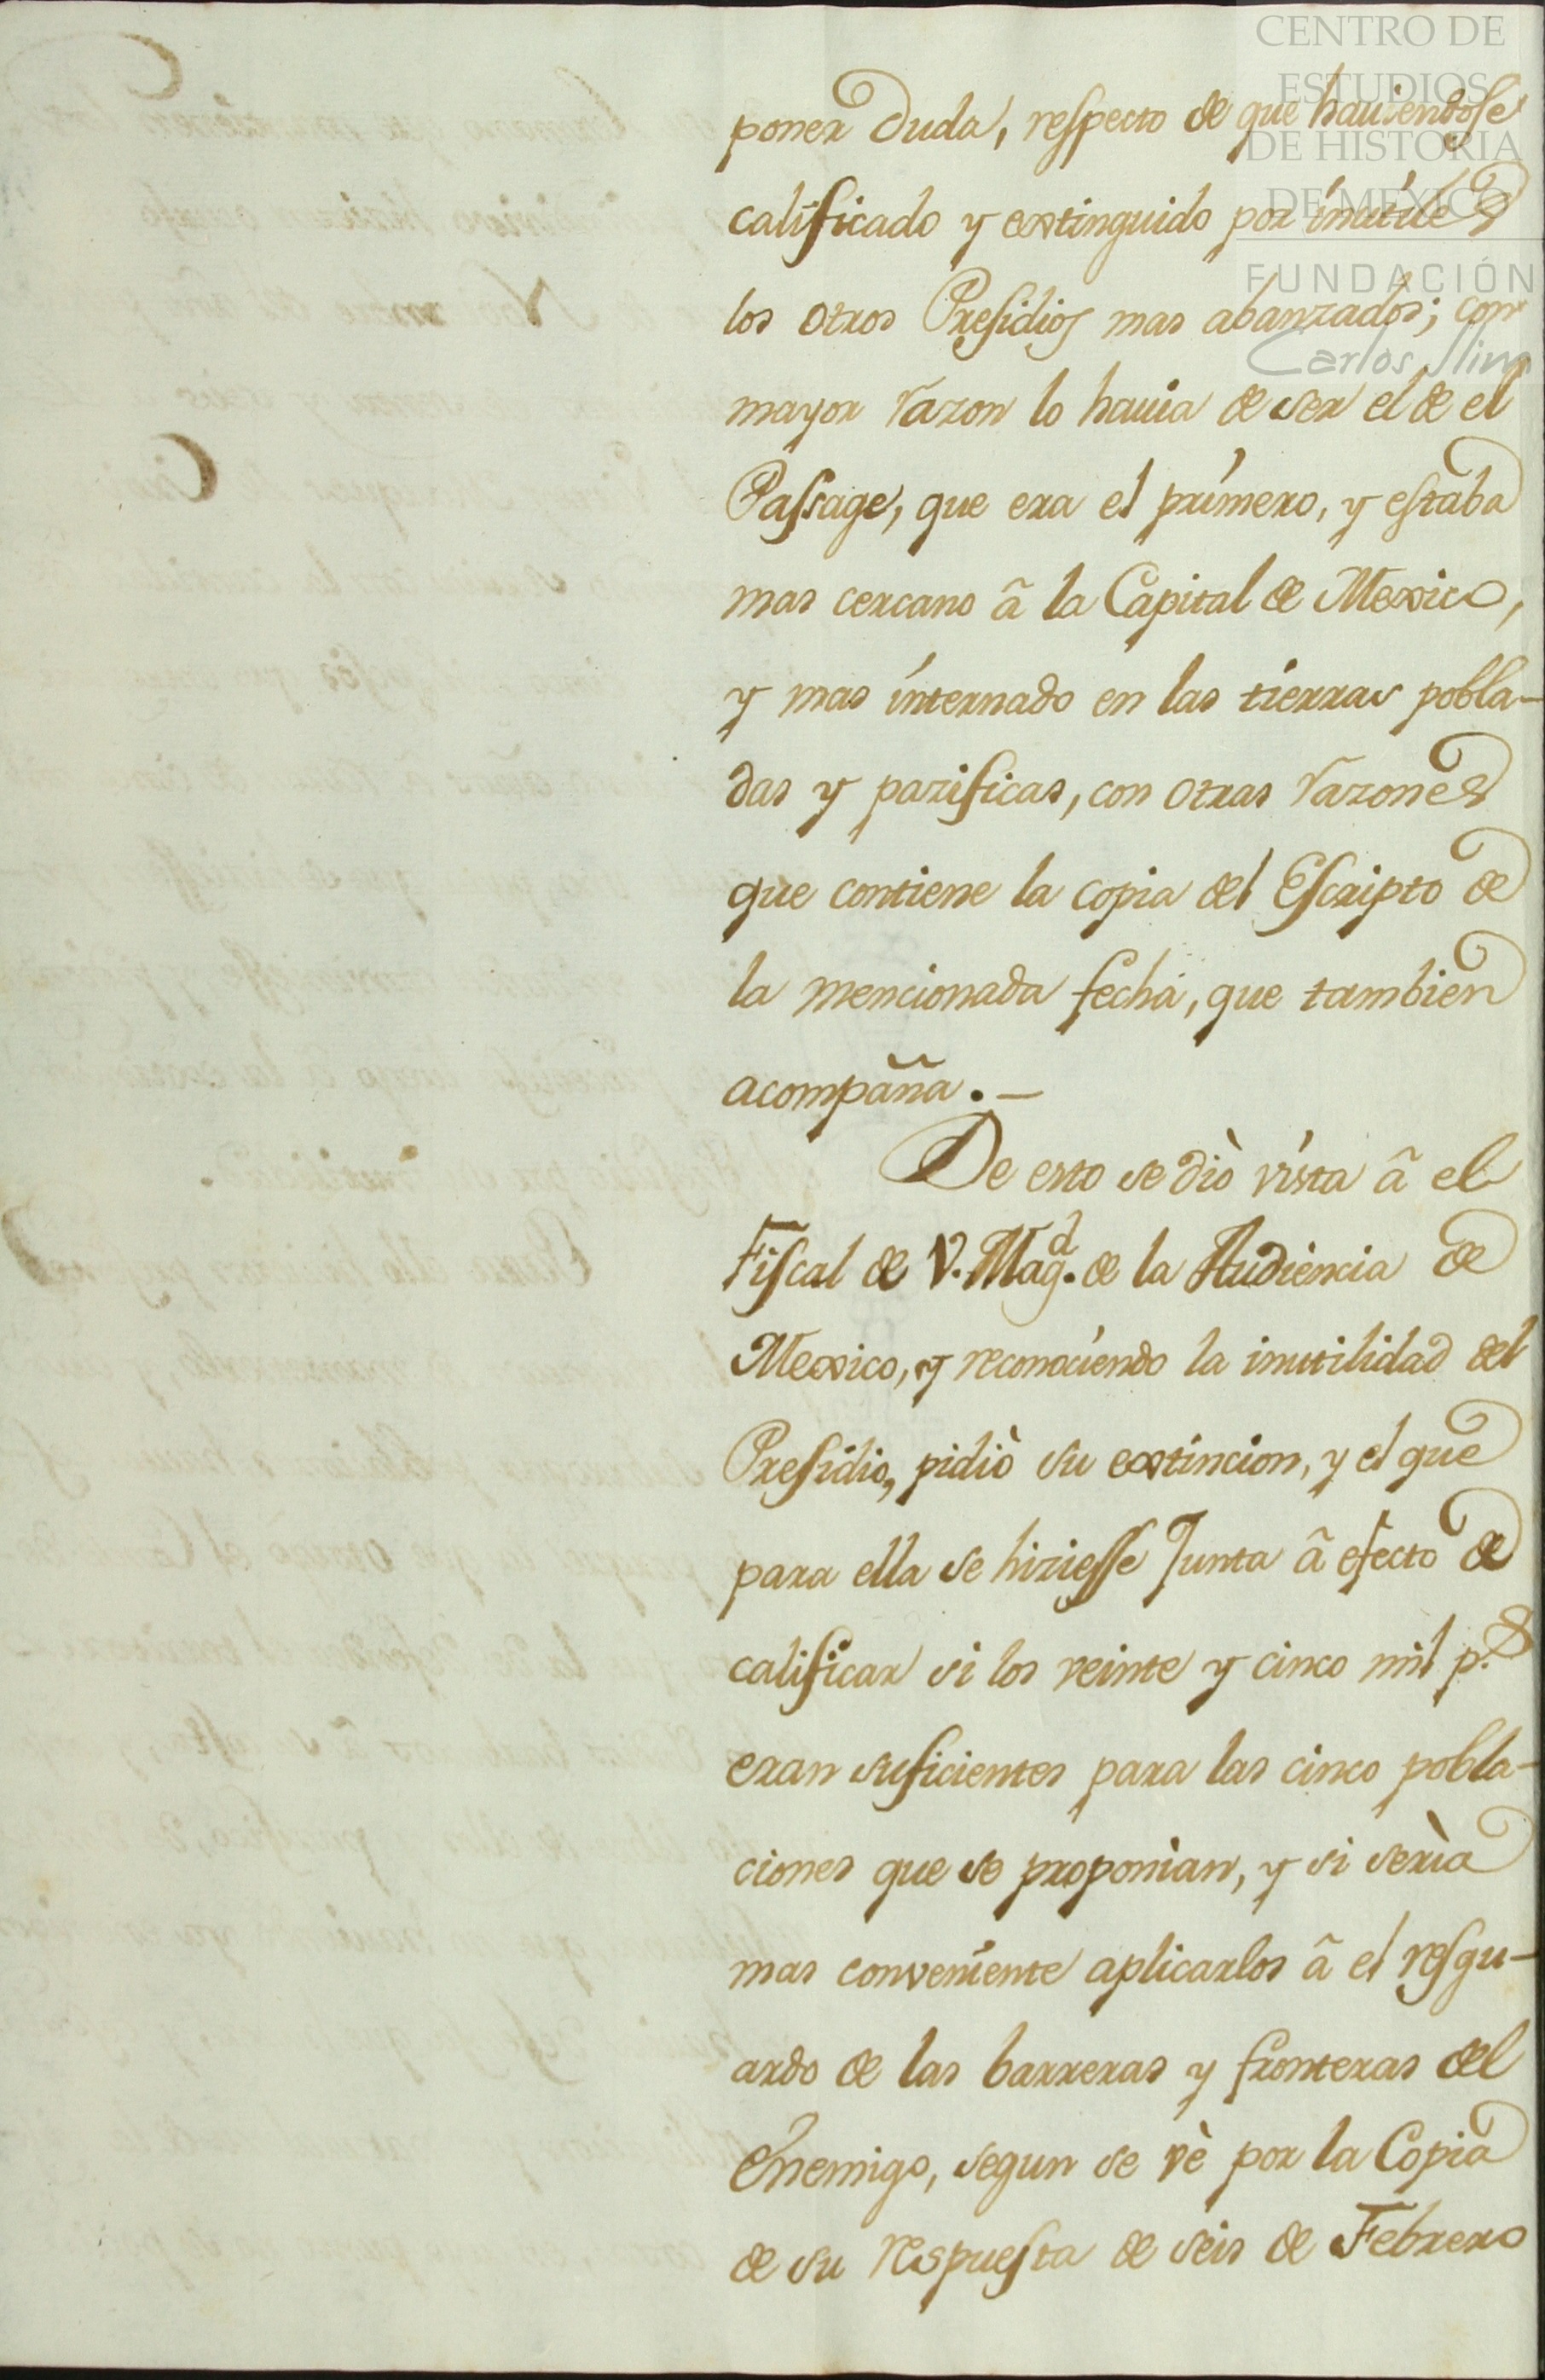 CENTRO DE
ESTUDIOS
DE HISTORIA
DE MEXICO
FUNDACIÓN
Carlos Slim
poner duda, respecto de que haviendose
calificado y extinguido por inutiles
los otros Presidios mas abanzados; con
mayor razon lo havia de ser el de el
Passage, que era el primero, y estaba
mas cercano â la Capital de Mexico,
y mas internado en las tierras pobla-
das y pazificas, con otras razones
que contiene la copia del Escripto de
la mencionada fecha, que tambien
acompãña.—
De esto se diò vista â el
Fiscal de V. Magd. de la Audiencia de
Mexico, y reconociendo la inutilidad del
Presidio, pidiò su extincion, y el que
para ella se hiziesse Junta â efecto de
calificar si los veinte y cinco mil ps.
eran suficientes para las cinco pobla-
ciones que se proponian, y si serìa
mas conveniente aplicarlos â el resgu-
ardo de las barreras y fronteras del
Enemigo, segun se vè por la Copia
de su respuesta de seis de Febrero